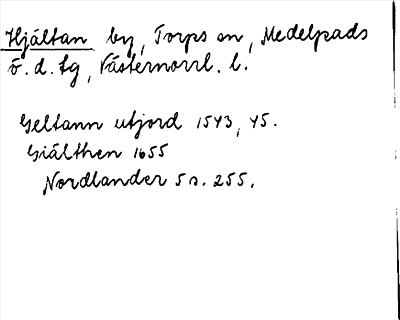 Hjältan by, Torps sn, Medelpads
v. d. tg, Västernorrl. l.
Geltann utjord 1543, 45.
Giälthen 1655
Nordlander 5 s. 255.